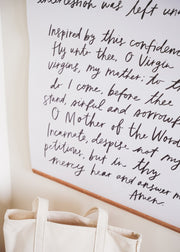 intercession was left un
Inspired by this confidence
fly unto thee, O Virgin
virgins, my mother; to th
do I come, before thee
stand, sinful and sorrowf
O Mother of the Word
Incarnate, despise not my
petitions, but in thy
mercy hear and answer m
Amen.